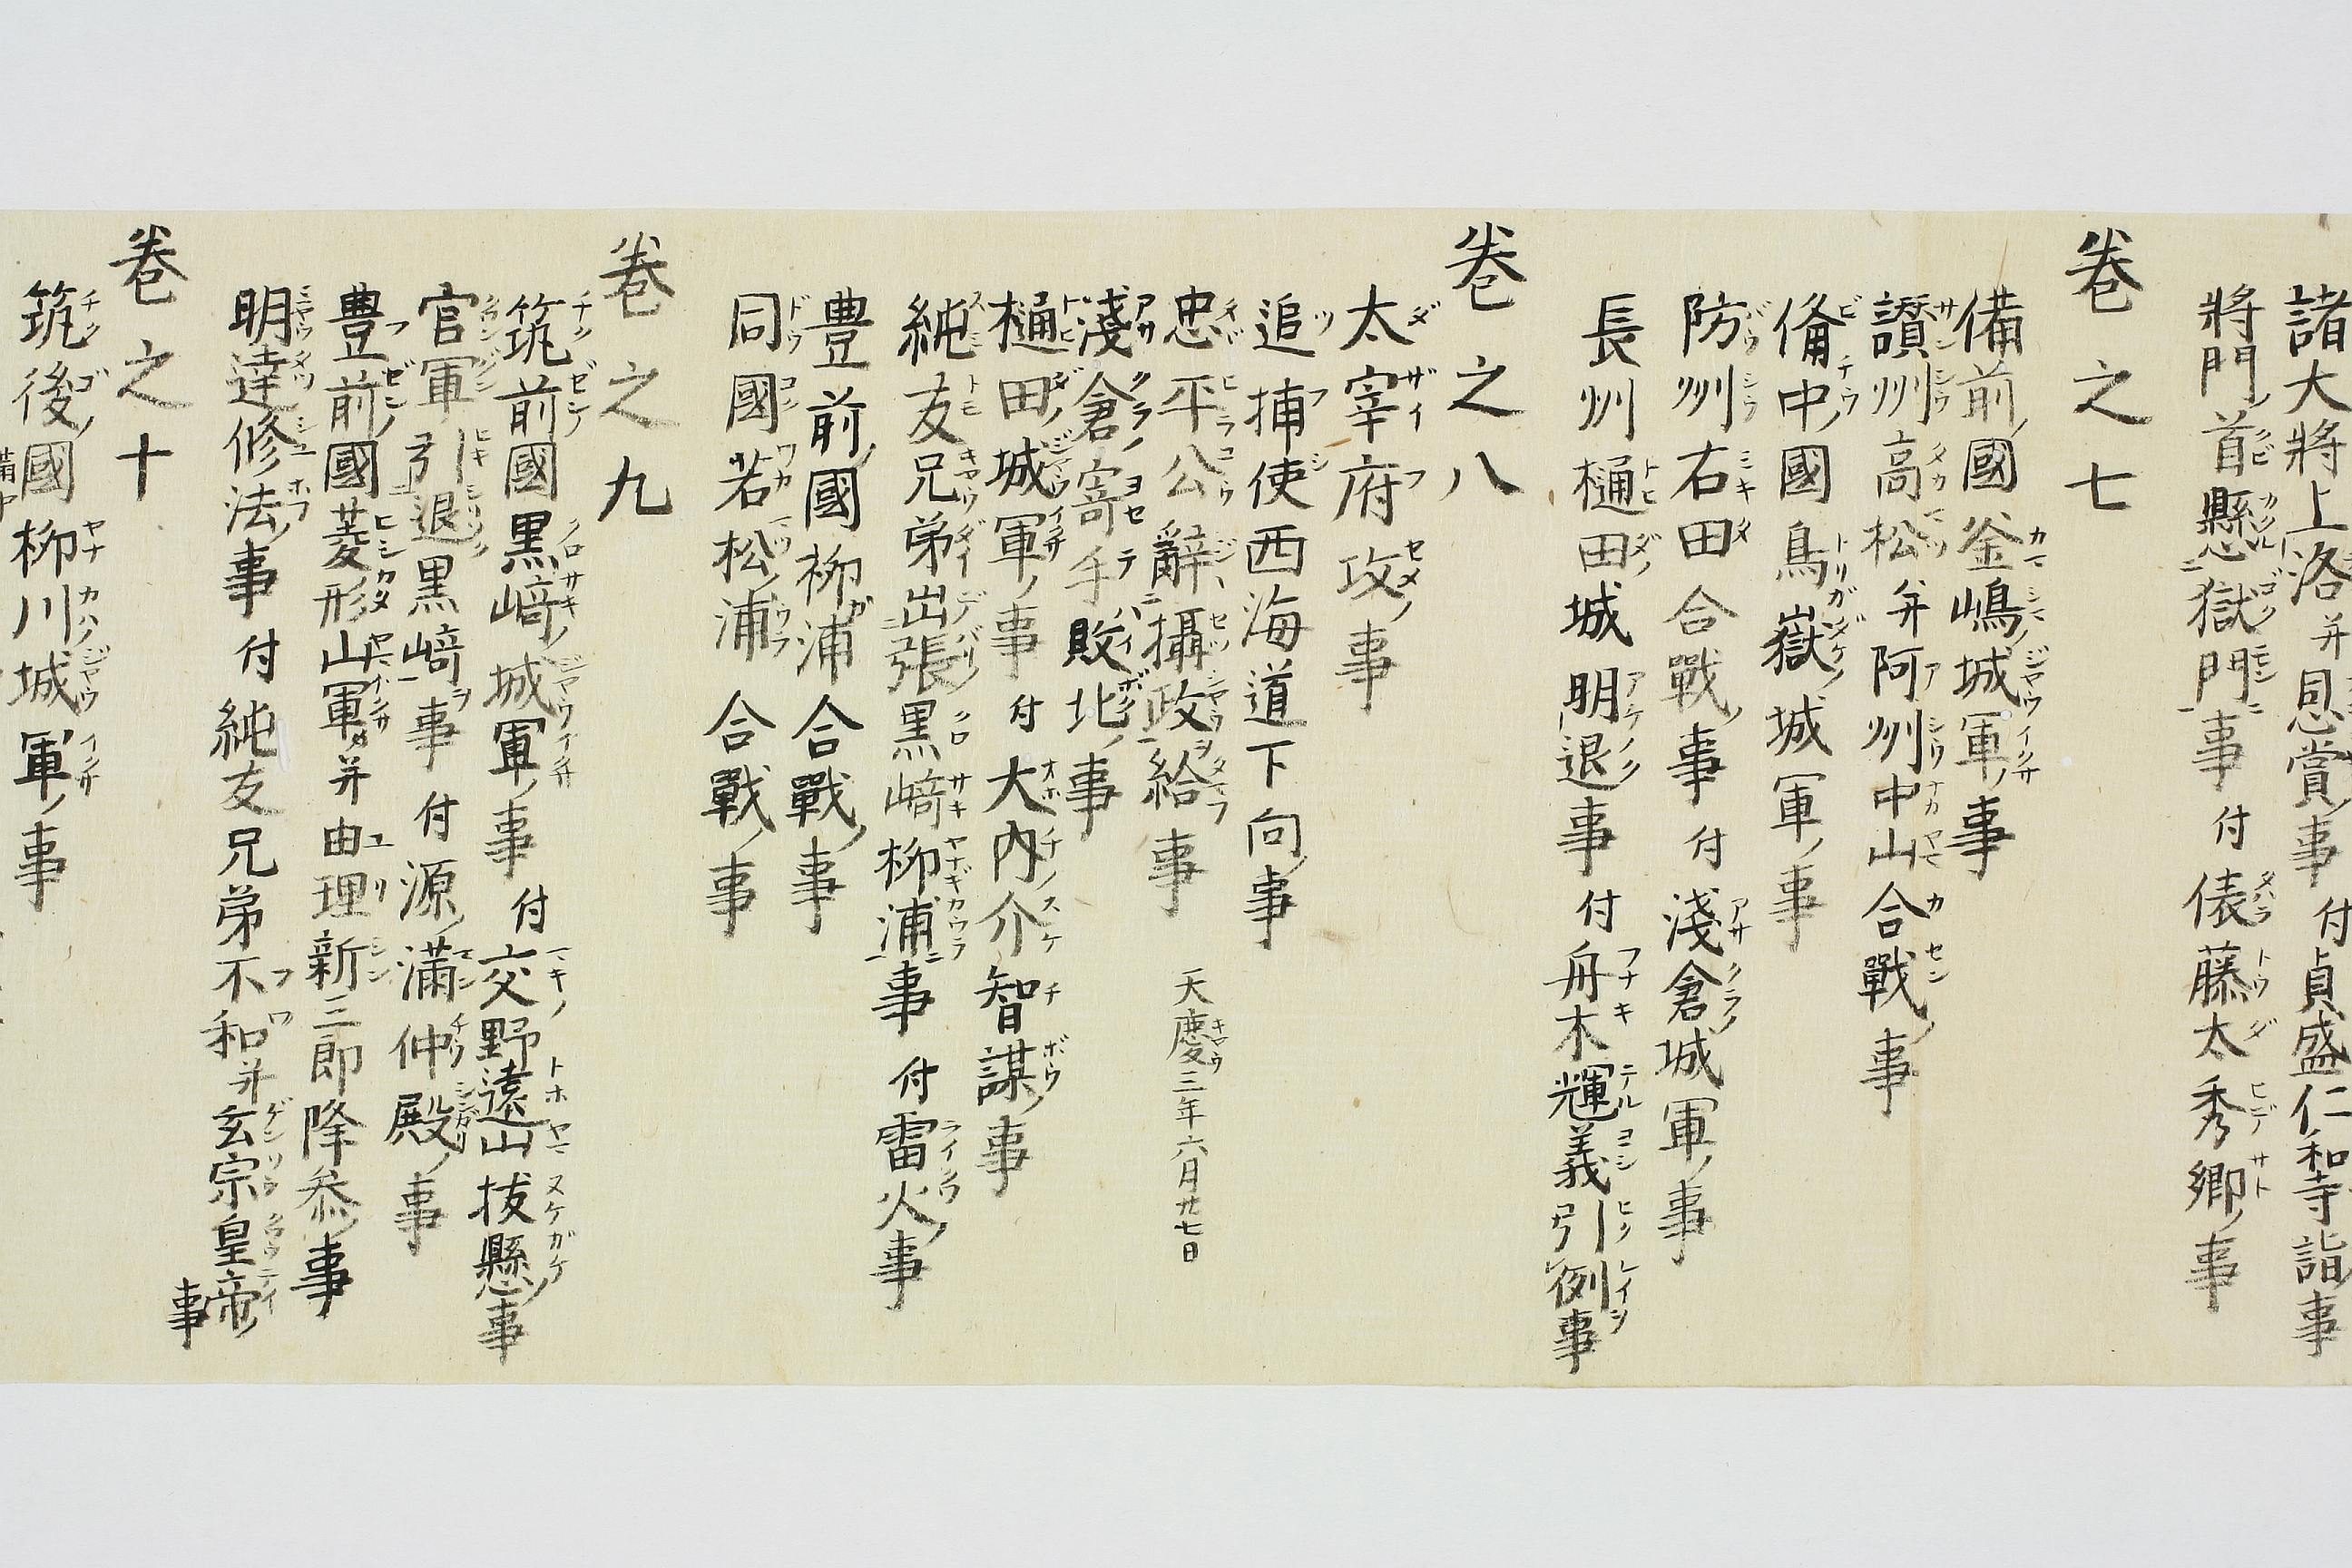 諸大將上洛并恩賞ノ事 付貞盛仁和寺詣事
將門ノ首懸獄門事 付俵藤太秀卿ノ事
巻之七
備前ノ國釜嶋ノ城軍ノ事
讃州高松并阿州中山合戰ノ事
備中ノ國鳥嶽ノ城軍ノ事
防州右田合戰ノ事 付淺倉ノ城軍ノ事
長州樋田城明退事 付舟木輝義引例事
巻之八
太宰府攻ノ事
追捕使西海道下向ノ事
忠平公辭攝政給事 天慶三年六月廿七日
淺倉ノ寄手敗北ノ事
樋田ノ城軍ノ事 付大内介智謀ノ事
純友兄弟出張黒﨑柳浦事 付雷火ノ事
豊前ノ國柳浦合戰ノ事
同國若松ノ浦合戰ノ事
巻之九
筑前國黒﨑ノ城軍ノ事 付交野遠山抜懸ノ事
官軍引退黒﨑事 付源ノ滿仲殿ノ事
豊前ノ國菱形山軍并由理新三郎降參ノ事
明達修法ノ事 付純友兄弟不和并玄宗皇帝ノ事
巻之十
筑後ノ國柳川城軍ノ事